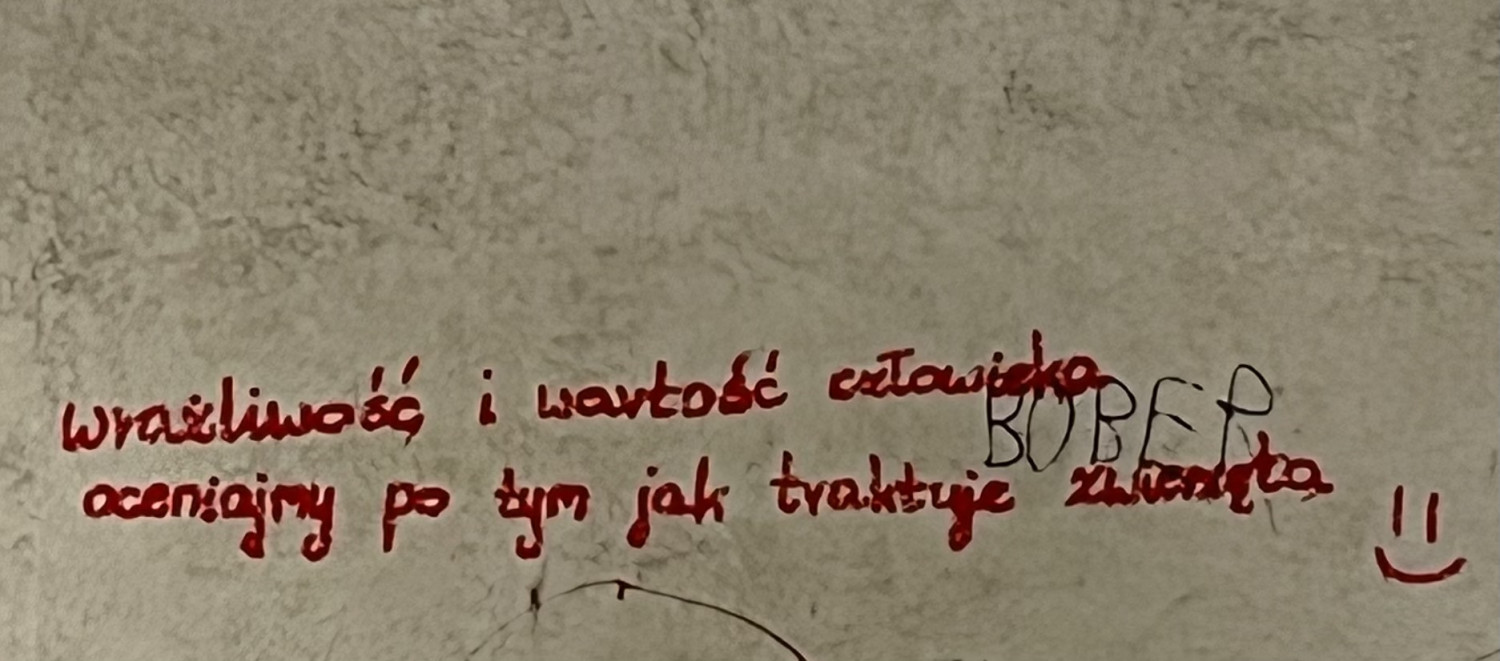 wrażliwość i wartość człowieka
BOBER
oceniajmy po tym jak traktuje zwierzęta